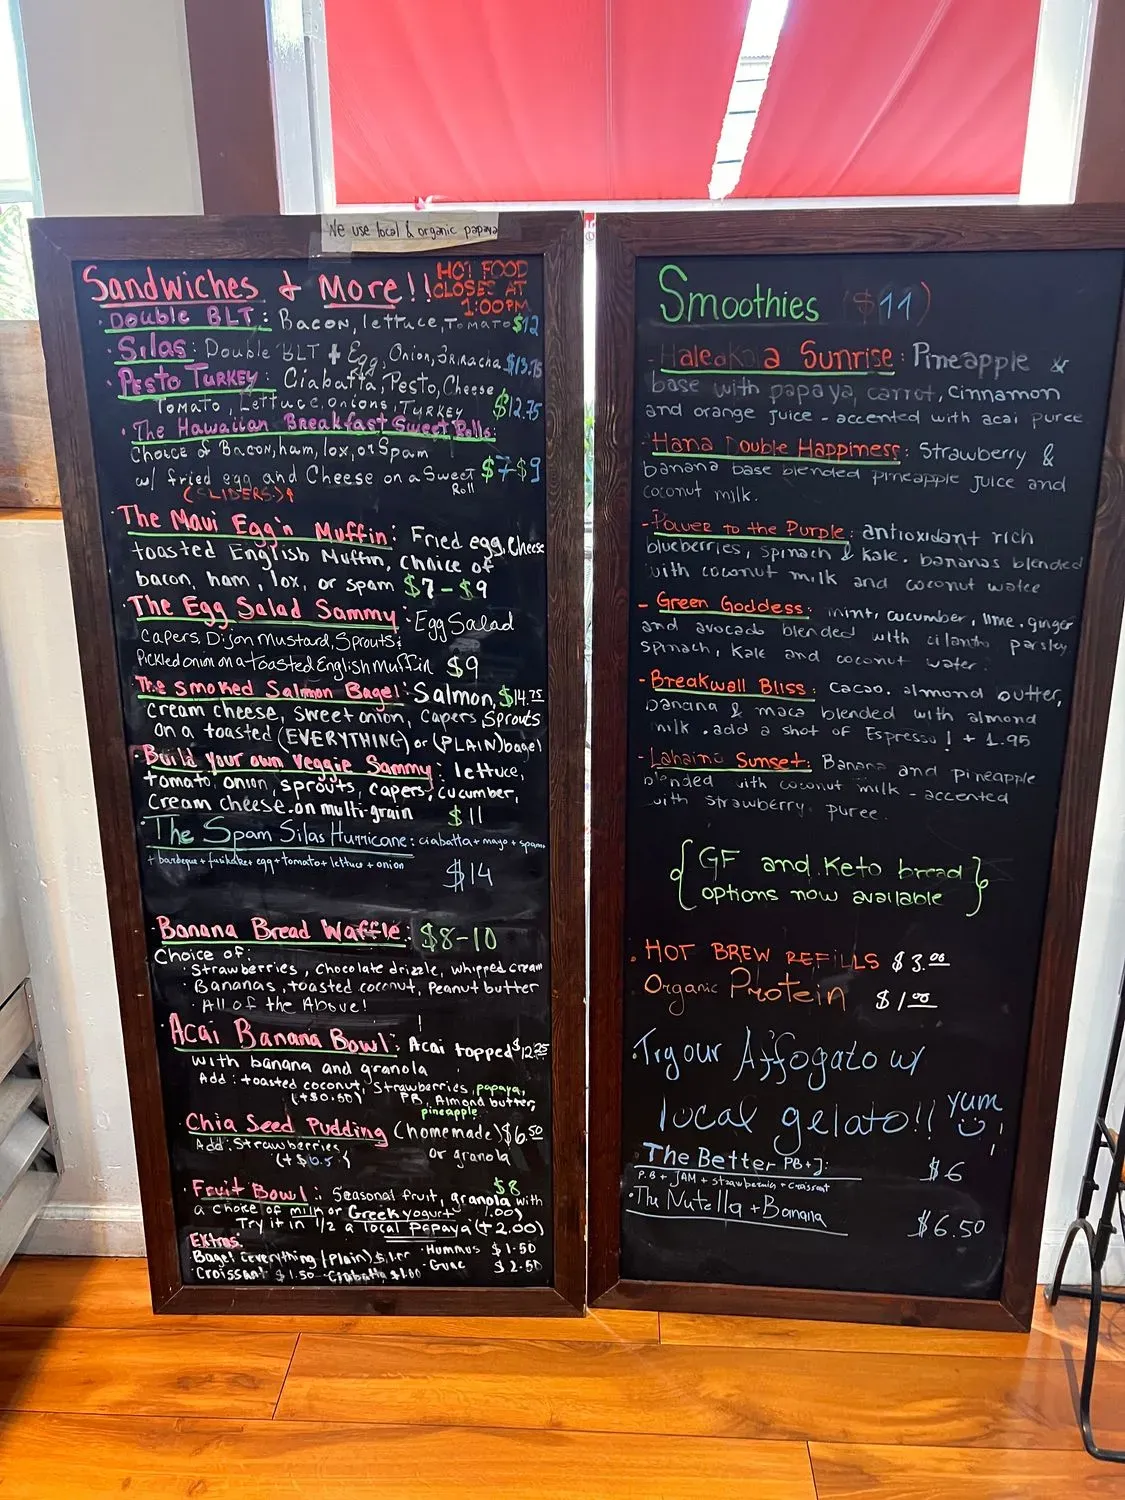 We use local & organic papaya
Sandwiches & More!!
HOT FOOD
CLOSES AT
1:00PM
· DOUBLE BLT: BACON, lettuce, Tomato $12
· Silas: Double BLT + Egg, Onion, Sriracha $13.75
· Pesto TURKEY: Ciabatta, Pesto, Cheese
Tomato, Lettuce, Onions, TURKEY $12.75
· The Hawaiian Breakfast Sweet Rolls:
Choice of Bacon, ham, lox, or Spam
w/ fried egg and Cheese on a Sweet Roll $7-$9
(SLIDERS:)
· The Maui Egg'n Muffin: Fried egg, Cheese
toasted English Muffin, choice of
bacon, ham, lox, or spam $7-$9
· The Egg Salad Sammy: Egg Salad
Capers, Dijon Mustard, Sprouts &
Pickled onion on a toasted English Muffin $9
· The Smoked Salmon Bagel: Salmon, $14.75
cream cheese, sweet onion, capers Sprouts
on a toasted (EVERYTHING) or (PLAIN) bagel
· Build your own Veggie Sammy: lettuce,
tomato, onion, sprouts, capers, cucumber,
Cream cheese. on multi-grain $11
· The Spam Silas Hurricane: ciabatta + mayo + spam
+ furikake + egg + tomato + lettuce + onion $14
· Banana Bread Waffle: $8-10
Choice of:
· Strawberries, chocolate drizzle, whipped cream
· Bananas, toasted coconut, Peanut butter
· All of the Above!
· Acai Banana Bowl: Acai topped $12.25
with banana and granola
Add: toasted coconut, Strawberries, papaya,
(+$0.50) PB, Almond butter,
pineapple
· Chia Seed Pudding (homemade) $6.50
Add: Strawberries or granola
· Fruit Bowl: Seasonal fruit, granola with $8
a choice of milk or Greek yogurt 1.00)
Try it in 1/2 a local Papaya (+2.00)
Extras:
· Bagel (everything/plain) · Hummus $1.50
· Croissant $1.50 · Ciabatta · Guac $2.50
Smoothies ($11)
- Haleakala Sunrise: Pineapple
base with papaya, carrot, cinnamon
and orange juice - accented with acai puree
- Hana Double Happiness: Strawberry &
banana base blended pineapple juice and
coconut milk.
- Power to the Purple: antioxidant rich
blueberries, spinach & kale. bananas blended
with coconut milk and coconut water
- Green Goddess: mint, cucumber, lime, ginger
and avocado blended with cilantro parsley
spinach, kale and coconut water.
- Breakwall Bliss: cacao, almond butter,
banana & maca blended with almond
milk. add a shot of Espresso! + 1.95
- Lahaina Sunset: Banana and pineapple
blended with coconut milk - accented
with strawberry puree.
{GF and Keto bread
options now available}
· HOT BREW REFILLS $3.00
Organic Protein $1.00
· Try our Affogato w/
local gelato!! Yum
· The Better PB+J: $6
P.B + JAM + strawberries + croissant
· The Nutella + Banana $6.50